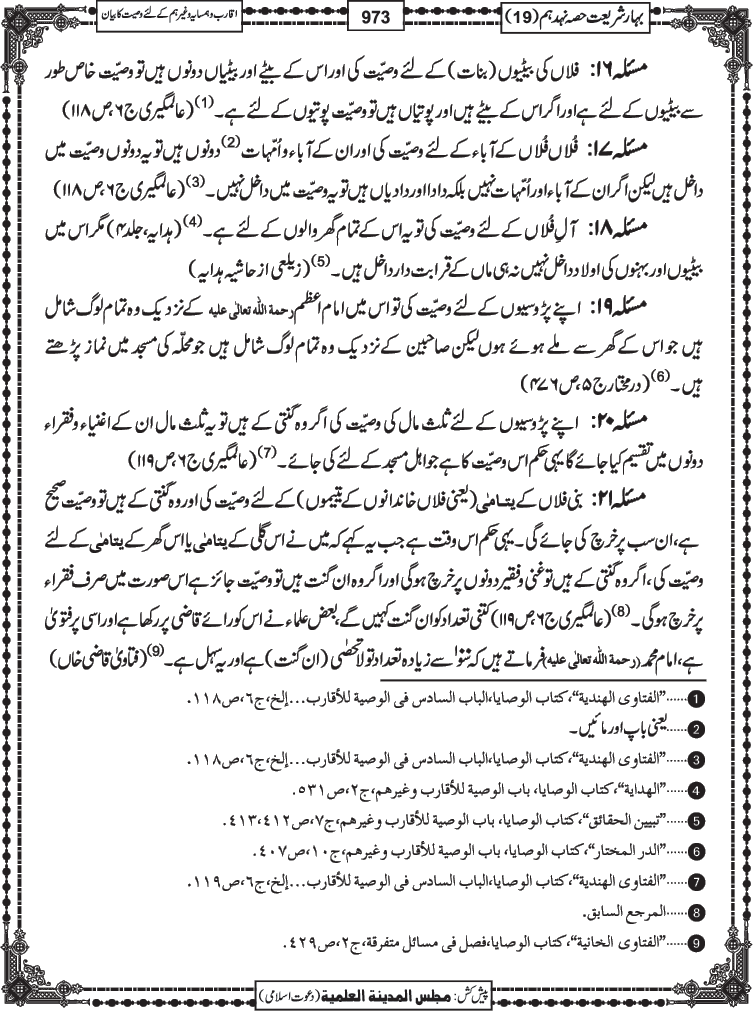 بہار شریعت حصہ نہدہم (19)
973
اقارب و ہمسایہ وغیرہم کے لئے وصیت کا بیان
مسئلہ ۱۶: فلاں کی بیٹیوں (بنات) کے لئے وصیّت کی اور اس کے بیٹے اور بیٹیاں دونوں ہیں تو وصیّت خاص طور
سے بیٹیوں کے لئے ہے اور اگر اس کے بیٹے ہیں اور پوتیاں ہیں تو وصیّت پوتیوں کے لئے ہے۔(1) (عالمگیری ج۶، ص۱۱۸)
مسئلہ ۱۷: فُلاں فُلاں کے آباء کے لئے وصیّت کی اور ان کے آباء و اُمّہات(2) دونوں ہیں تو یہ دونوں وصیّت میں
داخل ہیں لیکن اگر ان کے آباء اور اُمّہات نہیں بلکہ دادا اور دادیاں ہیں تو یہ وصیّت میں داخل نہیں۔(3) (عالمگیری ج۶، ص۱۱۸)
مسئلہ ۱۸: آلِ فُلاں کے لئے وصیّت کی تو یہ اس کے تمام گھر والوں کے لئے ہے۔(4) (ہدایہ، جلد۴) مگر اس میں
بیٹیوں اور بہنوں کی اولاد داخل نہیں نہ ہی ماں کے قرابت دار داخل ہیں۔(5) (زیلعی از حاشیہ ہدایہ)
مسئلہ ۱۹: اپنے پڑوسیوں کے لئے وصیّت کی تو اس میں امام اعظم رحمة الله تعالى عليه کے نزدیک وہ تمام لوگ شامل
ہیں جو اس کے گھر سے ملے ہوئے ہوں لیکن صاحبین کے نزدیک وہ تمام لوگ شامل ہیں جو محلّہ کی مسجد میں نماز پڑھتے
ہیں۔(6) (درمختار ج۵، ص۴۷۶)
مسئلہ ۲۰: اپنے پڑوسیوں کے لئے ثلث مال کی وصیّت کی اگر وہ گنتی کے ہیں تو یہ ثلث مال ان کے اغنیاء و فقراء
دونوں میں تقسیم کیا جائے گا یہی حکم اس وصیّت کا ہے جو اہل مسجد کے لئے کی جائے۔(7) (عالمگیری ج۶، ص۱۱۹)
مسئلہ ۲۱: بنی فلاں کے یتامٰی (یعنی فلاں خاندانوں کے یتیموں) کے لئے وصیّت کی اور وہ گنتی کے ہیں تو وصیّت صحیح
ہے، ان سب پر خرچ کی جائے گی۔ یہی حکم اس وقت ہے جب یہ کہے کہ میں نے اس گلی کے یتامٰی یا اس گھر کے یتامٰی کے لئے
وصیّت کی، اگر وہ گنتی کے ہیں تو غنی و فقیر دونوں پر خرچ ہوگی اور اگر وہ ان گنت ہیں تو وصیّت جائز ہے اس صورت میں صرف فقراء
پر خرچ ہوگی۔(8) (عالمگیری ج۶، ص۱۱۹) کتنی تعداد کو ان گنت کہیں گے، بعض علماء نے اس کو رائے قاضی پر رکھا ہے اور اسی پر فتویٰ
ہے، امام محمد (رحمة الله تعالى عليه) فرماتے ہیں کہ سَوْ سے زیادہ تعداد تو لا تحصٰی (ان گنت) ہے اور یہ سہل ہے۔(9) (فتاویٰ قاضی خاں)
1......”الفتاوى الهندية“، كتاب الوصايا، الباب السادس فى الوصية للأقارب...إلخ، ج٦، ص١١٨.
2......یعنی باپ اور مائیں۔
3......”الفتاوى الهندية“، كتاب الوصايا، الباب السادس فى الوصية للأقارب...إلخ، ج٦، ص١١٨.
4......”الهداية“، كتاب الوصايا، باب الوصية للأقارب وغيرهم، ج٢، ص٥٣١.
5......”تبيين الحقائق“، كتاب الوصايا، باب الوصية للأقارب وغيرهم، ج٧، ص٤١٢، ٤١٣.
6......”الدر المختار“، كتاب الوصايا، باب الوصية للأقارب وغيرهم، ج١٠، ص٤٠٧.
7......”الفتاوى الهندية“، كتاب الوصايا، الباب السادس فى الوصية للأقارب...إلخ، ج٦، ص١١٩.
8......المرجع السابق.
9......”الفتاوى الخانية“، كتاب الوصايا، فصل فى مسائل متفرقة، ج٢، ص٤٢٩.
پیش کش: مجلس المدينة العلمية (دعوت اسلامی)